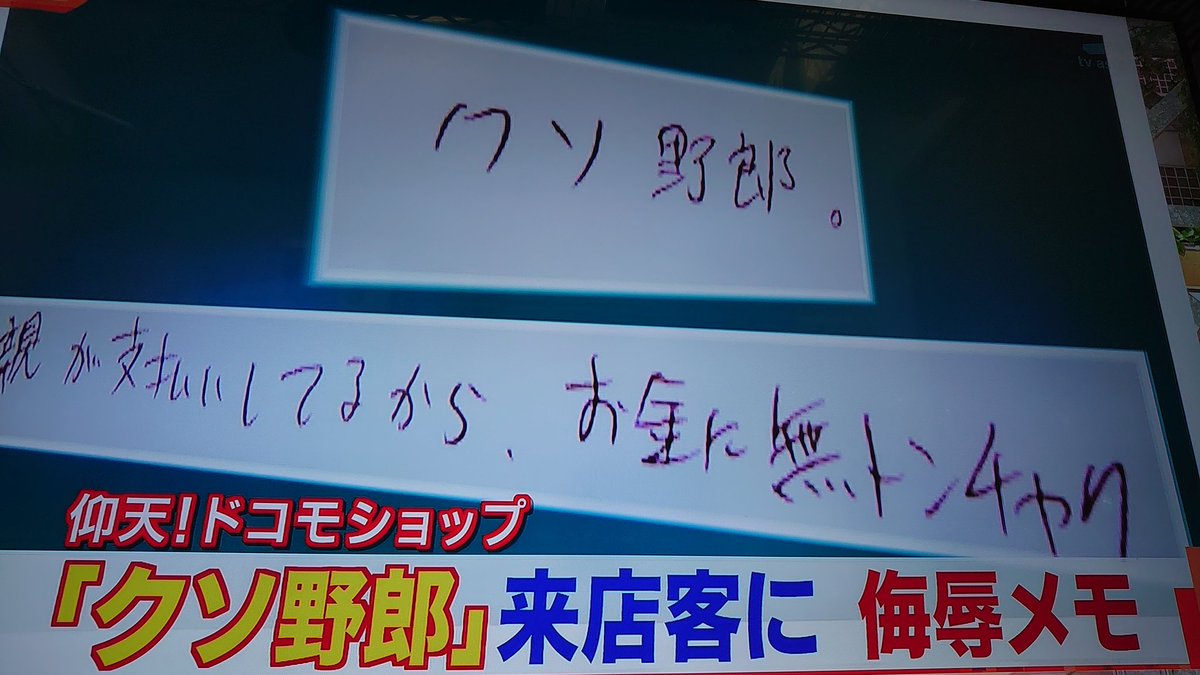 クソ野郎。
親が支払いしてるから、お金に無トンチャク
仰天!ドコモショップ
「クソ野郎」来店客に 侮辱メモ